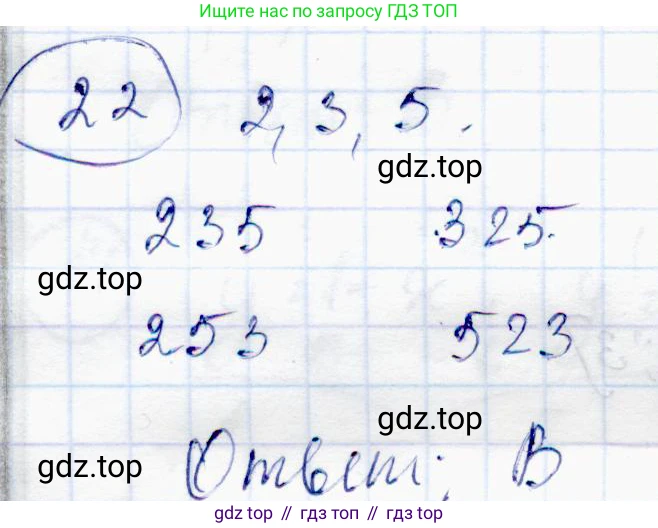 Ищите нас по запросу ГДЗ ТОП
22 2, 3, 5.
gdz.top
235 325.
gdz.top
253 523
gdz.top
Ответ: В
gdz.top
gdz.top // гдз топ // gdz.top